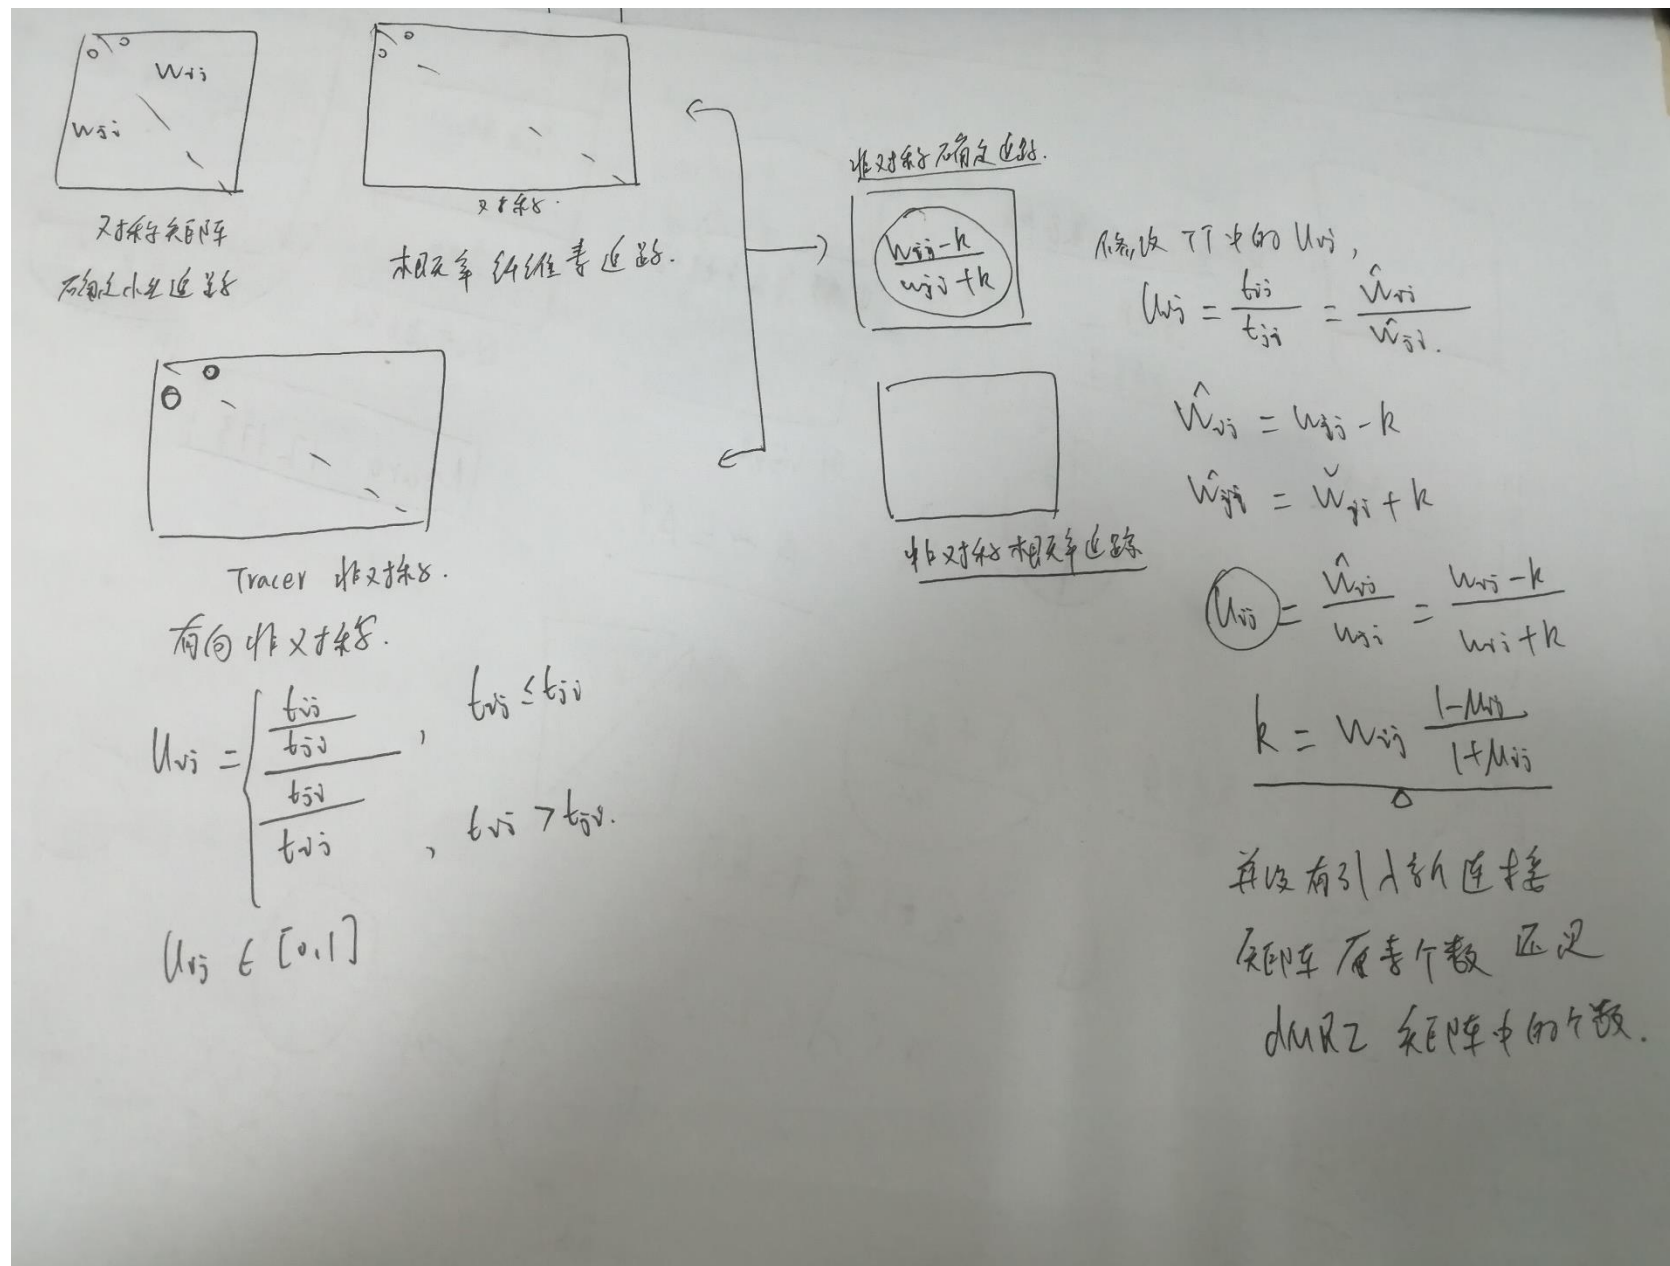 w_{ij}
w_{ji}
对称矩阵
确定性追踪
对称.
概率纤维素追踪.
Tracer 非对称.
有向非对称.
u_{ij} = { \frac{t_{ij}}{t_{ji}} , t_{ij} ≤ t_{ji}
\frac{t_{ji}}{t_{ij}} , t_{ij} > t_{ji}.
u_{ij} ∈ [0,1]
非对称确定追踪.
\frac{w_{ij}-k}{w_{ji}+k}
非对称概率追踪
修改 中的 u_{ij},
u_{ij} = \frac{t_{ij}}{t_{ji}} = \frac{\hat{w}_{ij}}{\hat{w}_{ji}}.
\hat{w}_{ij} = w_{ij} - k
\hat{w}_{ji} = w_{ji} + k
u_{ij} = \frac{\hat{w}_{ij}}{w_{ji}} = \frac{w_{ij}-k}{w_{ji}+k}
k = w_{ij} \frac{1-μ_{ij}}{1+μ_{ij}}
并没有引入新连接
矩阵 素个数 还是
dMRI 矩阵中的个数.